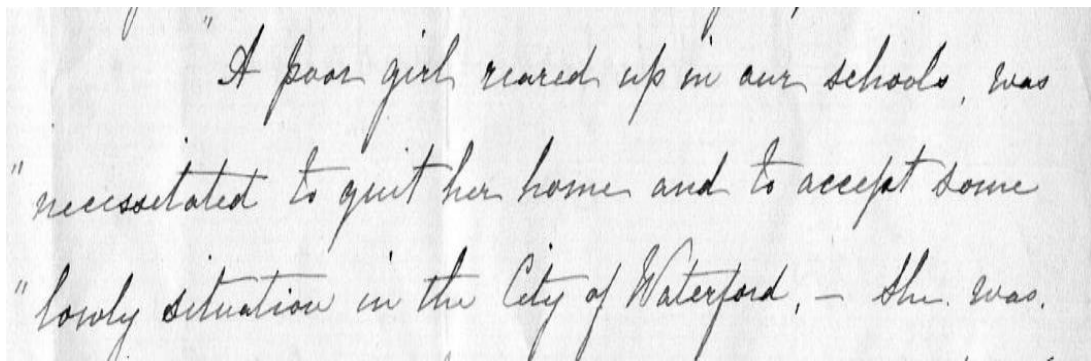 "A poor girl reared up in our schools, was
"necessitated to quit her home and to accept some
"lowly situation in the City of Waterford, – She was.